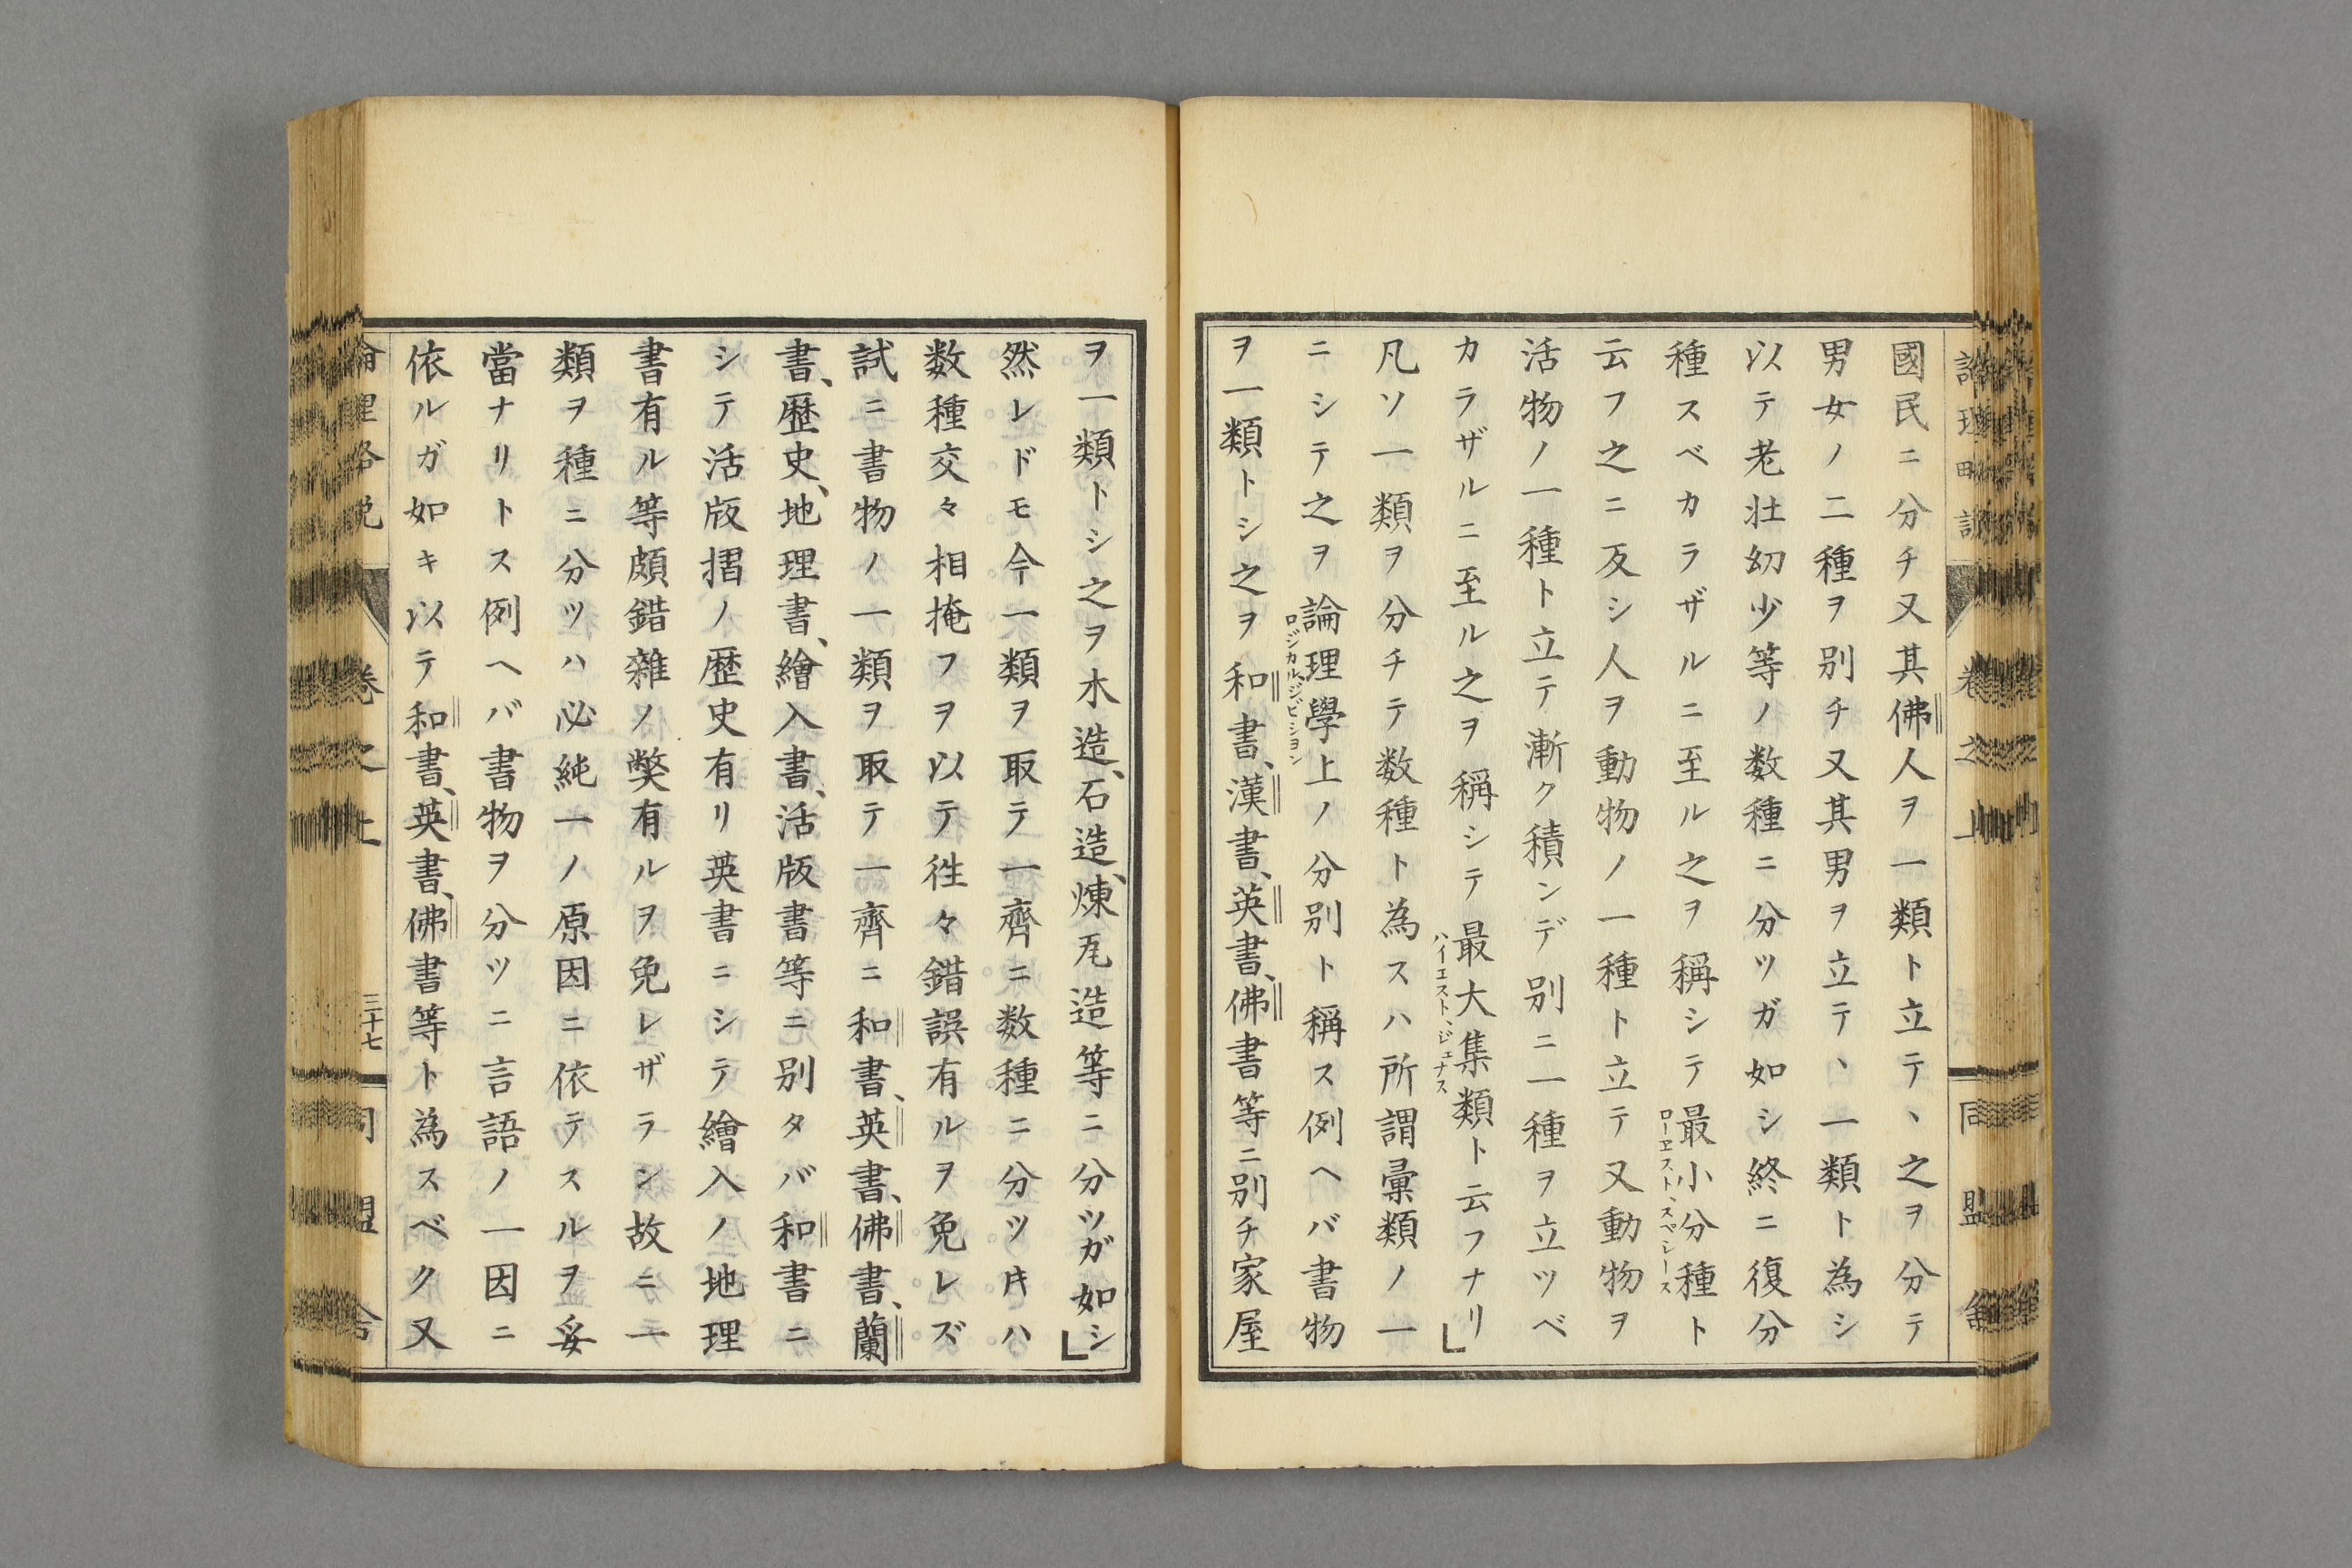 國民ニ分チ又其佛人ヲ一類ト立テヽ之ヲ分テ
男女ノ二種ヲ別チ又其男ヲ立テヽ一類ト為シ
以テ老壮幼少等ノ数種ニ分ツガ如シ終ニ復分
種スベカラザルニ至ル之ヲ稱シテ最小分種ト
ローヱスト、スペシース
云フ之ニ反シ人ヲ動物ノ一種ト立テ又動物ヲ
活物ノ一種ト立テ漸ク積ンデ別ニ一種ヲ立ツベ
カラザルニ至ル之ヲ稱シテ最大集類ト云フナリ」
ハイエスト、ジェナス
凡ソ一類ヲ分チテ数種ト為スハ所謂彙類ノ一
ニシテ之ヲ論理學上ノ分別ト稱ス例ヘバ書物
ロジカルジビション
ヲ一類トシ之ヲ和書、漢書、英書、佛書等ニ別チ家屋
ヲ一類トシ之ヲ木造、石造、煉瓦造等ニ分ツガ如シ」
然レドモ今一類ヲ取テ一齊ニ数種ニ分ツ片ハ
数種交々相掩フヲ以テ徃々錯誤有ルヲ免レズ
試ニ書物ノ一類ヲ取テ一齊ニ和書、英書、佛書、蘭
書、歴史、地理書、繪入書、活版書等ニ別タバ和書ニ
シテ活版摺ノ歴史有リ英書ニシテ繪入ノ地理
書有ル等頗錯雜ノ弊有ルヲ免レザラン故ニ一
類ヲ種ニ分ツハ必純一ノ原因ニ依テスルヲ妥
當ナリトス例ヘバ書物ヲ分ツニ言語ノ一因ニ
依ルガ如キ以テ和書、英書、佛書等ト為スベク又
卷之上
三十七
同盟舎